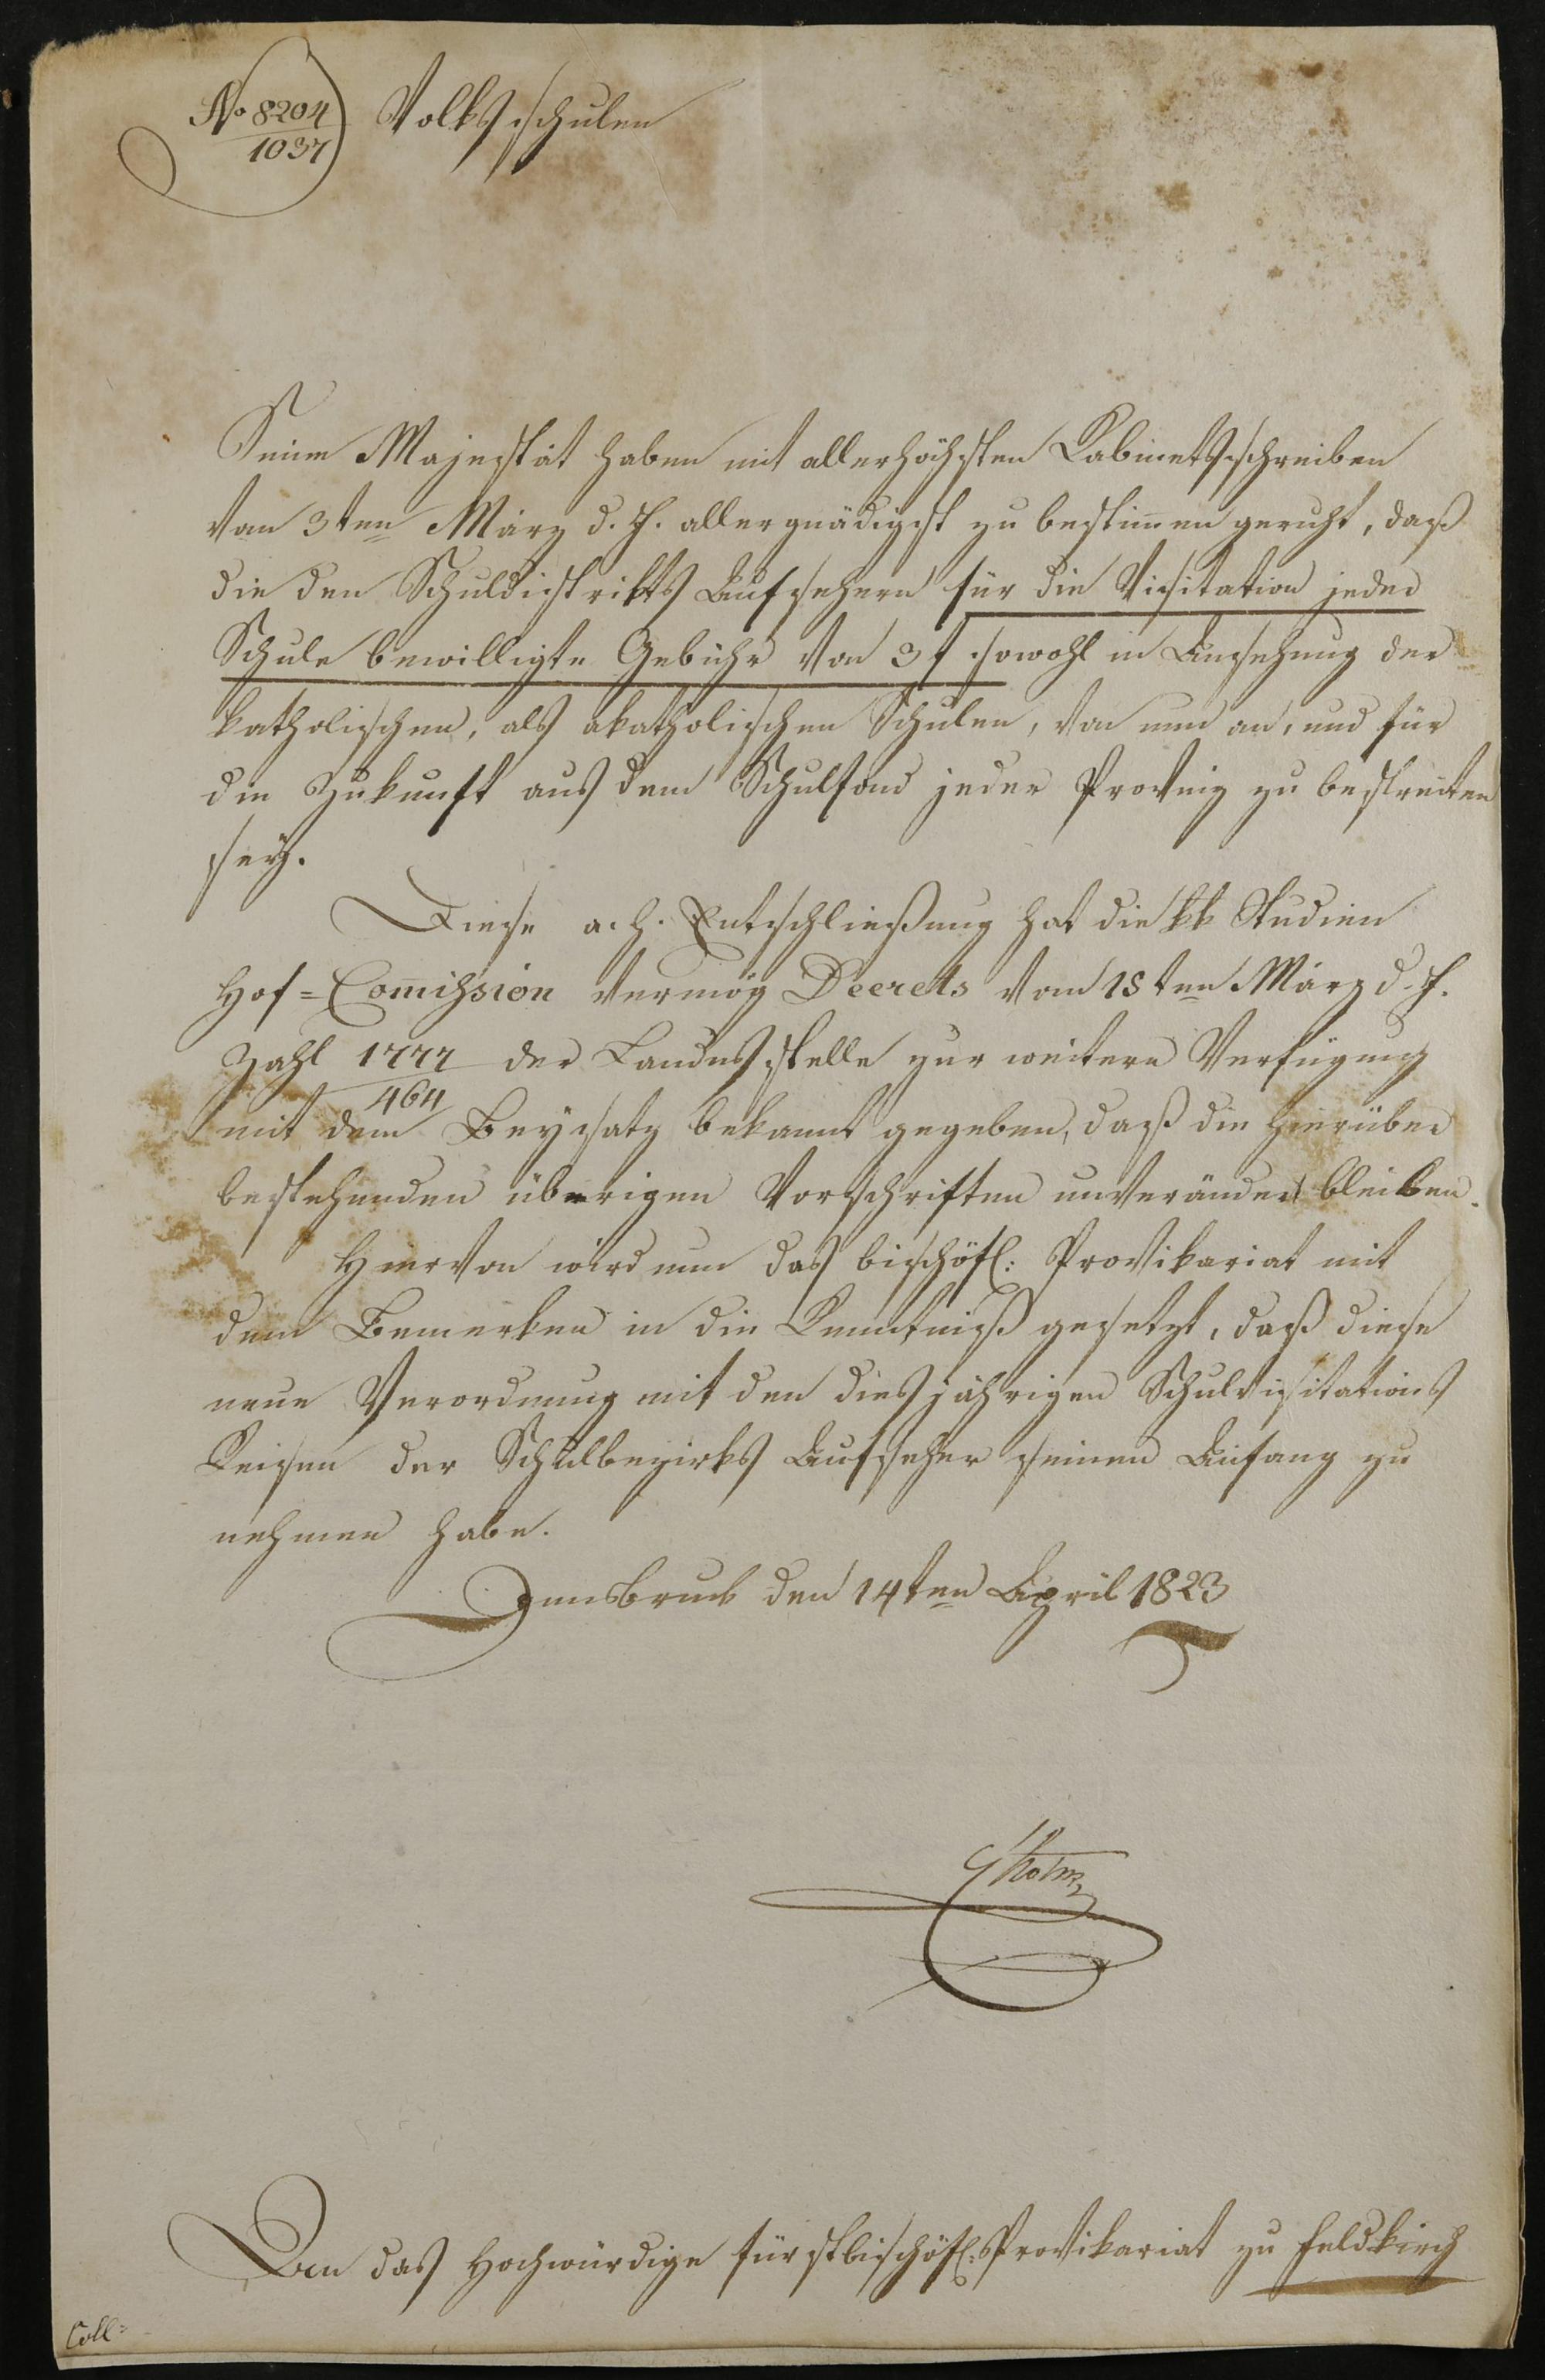 No 8204
1037
Volksschulen
Seine Majestät haben mit allerhöchsten Kabinetsschreiben
vom 3ten März d. J. allergnädigst zu bestim̅en geruht, daß
die den Schuldistrikts Aufsehern für die Visitation jeder
Schule bewilligte Gebühr von 3 f sowohl in Ansehung der
katholischen, als akatholischen Schulen, von nun an, und für
die Zukunft aus dem Schulfond jeder Provinz zu bestreiten
sey.
Diese a. h. Entschließung hat die kk Studien
Hof=Com̅ission vermög Decrets vom 18ten März d. J.
Zahl 1777
464
der Landesstelle zur weitern Verfügung
mit dem Beysatz bekannt gegeben, daß die hierüber
bestehenden überigen Vorschriften unverändert bleiben.
Hiervon wird nun das bischöfl: Provikariat mit
dem Bemerken in die Kenntniß gesetzt, daß diese
neue Verordnung mit den diesjährigen Schulvisitations
Reisen der Schulbezirks Aufseher seinen Anfang zu
nehmen habe.
Innsbruck den 14ten April 1823
An das Hochwürdige fürstbischöfl: Provikariat zu Feldkirch
Coll: